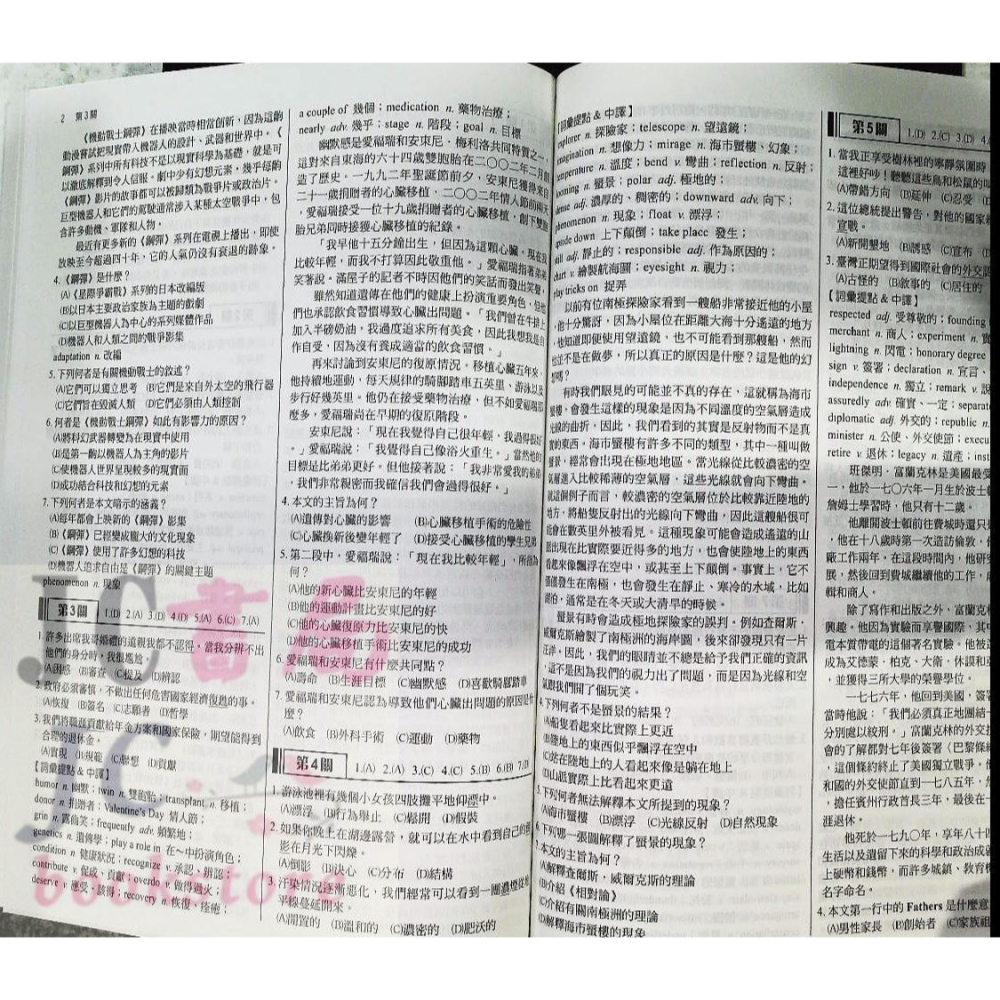 2 第3關
《機動戰士鋼彈》在播映當時相當創新，因為這齣
動漫嘗試把現實帶入機器人的設計、武器和世界中。《
鋼彈》系列中所有科技不是以現實科學為基礎，就是可
以徹底解釋到令人信服。劇中少有幻想元素，幾乎每齣
《鋼彈》影片的故事都可以被歸類為戰爭片或政治片。
巨型機器人和它們的駕駛通常涉入某種太空戰爭中，包
含許多機構、軍隊和人物。
最近有更多新的《鋼彈》系列在電視上播出，即使
放映至今超過四十年，它的人氣仍沒有衰退的跡象。
4.《鋼彈》是什麼？
(A)《星際爭霸戰》系列的日本改編版
(B)以日本主要政治家族為主題的戲劇
(C)以巨型機器人為中心的系列媒體作品
(D)機器人和人類之間的戰爭影集
adaptation n. 改編
5.下列何者是有關機動戰士的敘述？
(A)它們可以獨立思考 (B)它們是來自外太空的飛行器
(C)它們旨在毀滅人類 (D)它們必須由人類控制
6.何者是《機動戰士鋼彈》如此有影響力的原因？
(A)將科幻武器轉變為在現實中使用
(B)是第一齣以機器人為主角的影片
(C)使機器人世界呈現較多的現實面
(D)成功結合科技和幻想的元素
7.下列何者是本文暗示的涵義？
(A)每年都會上映新的《鋼彈》影集
(B)《鋼彈》已經變成龐大的文化現象
(C)《鋼彈》使用了許多幻想的科技
(D)機器人追求自由是《鋼彈》的關鍵主題
phenomenon n. 現象
第3關 1.(D) 2.(A) 3.(D) 4.(D) 5.(A) 6.(C) 7.(A)
1.許多出席我哥婚禮的遠親我都不認得。當我分辨不出
他們的身分時，我很尷尬。
(A)困惑 (B)審查 (C)提及 (D)辨認
2.政府必須審慎，不做出任何危害國家經濟復甦的事。
(A)恢復 (B)簽名 (C)志願者 (D)哲學
3.我們將職涯貢獻給年金方案和國家保險，期望能得到
合理的退休金。
(A)實現 (B)規範 (C)聯想 (D)貢獻
【詞彙提點＆中譯】
humor n. 幽默；twin n. 雙胞胎；transplant n. 移植；
donor n. 捐贈者；Valentine's Day 情人節；
grin n. 露齒笑；frequently adv. 頻繁地；
genetics n. 遺傳學；play a role in 在～中扮演角色；
condition n. 健康狀況；recognize v. 承認、辨認；
contribute v. 促成、貢獻；overdo v. 做得過火；
deserve v. 應受、該得；recovery n. 恢復、痊癒；
a couple of 幾個；medication n. 藥物治療；
nearly adv. 幾乎；stage n. 階段；goal n. 目標
幽默感是愛福瑞和安東尼．梅利洛共同特質之一，
這對來自東海的六十四歲雙胞胎在二○○二年二月創
造了歷史。一九九二年聖誕節前夕，安東尼獲得來自
二十一歲捐贈者的心臟移植，二○○二年情人節的兩天
，愛福瑞接受一位十九歲捐贈者的心臟移植，創下雙胞
胎兄弟同時接獲心臟移植的紀錄。
「我早他十五分鐘出生，但因為這顆心臟，現在我
比較年輕，而我不打算因此敬重他。」愛福瑞指著弟弟
笑著說。滿屋子的記者不時因他們的笑話而發出笑聲。
雖然知道遺傳在他們的健康上扮演重要角色，但他
們也承認飲食習慣導致心臟出問題。「我們曾在牛排上
加入半磅奶油，我過度追求所有美食，因此我想我是自
作自受，因為沒有養成適當的飲食習慣。」
再來討論到安東尼的復原情況。移植心臟五年來，
他持續地運動，每天規律的騎腳踏車五英里、游泳以及
步行好幾英里。他仍在接受藥物治療，但不如愛福瑞那
麼多，愛福瑞尚在早期的復原階段。
安東尼說：「現在我覺得自己很年輕，我過得很好
。」愛福瑞說：「我覺得自己像浴火重生。」當然他的
目標是比弟弟更好。但他接著說：「我非常愛我的弟弟
，我們非常親密而我確信我們會過得很好。」
4.本文的主旨為何？
(A)遺傳對心臟的影響 (B)心臟移植手術的危險性
(C)心臟換新後變年輕了 (D)接受心臟移植的孿生兄弟
5.第二段中，愛福瑞說：「現在我比較年輕」，所指為
何？
(A)他的新心臟比安東尼的年輕
(B)他的運動計畫比安東尼的好
(C)他的心臟復原力比安東尼的快
(D)他的心臟移植手術比安東尼的成功
6.愛福瑞和安東尼有什麼共同點？
(A)壽命 (B)生涯目標 (C)幽默感 (D)喜歡騎腳踏車
7.愛福瑞和安東尼認為導致他們心臟出問題的原因是什
麼？
(A)飲食 (B)外科手術 (C)運動 (D)藥物
第4關 1.(A) 2.(A) 3.(C) 4.(C) 5.(B) 6.(B) 7.(D)
1.游泳池裡有幾個小女孩四肢攤平地仰漂中。
(A)漂浮 (B)行為舉止 (C)鬆開 (D)假裝
2.如果你晚上在湖邊露營，就可以在水中看到自己的倒
影在月光下閃爍。
(A)倒影 (B)決心 (C)分布 (D)結構
3.汙染情況逐漸惡化，我們經常可以看到一團濃煙從地
平線蔓延開來。
(A)開闊的 (B)溫和的 (C)濃密的 (D)肥沃的
【詞彙提點＆中譯】
explorer n. 探險家；telescope n. 望遠鏡；
imagination n. 想像力；mirage n. 海市蜃樓、幻象；
temperature n. 溫度；bend v. 彎曲；reflection n. 反射；
looming n. 蜃景；polar adj. 極地的；
dense adj. 濃厚的、稠密的；downward adv. 向下；
phenomenon n. 現象；float v. 漂浮；
upside down 上下顛倒；take place 發生；
still adj. 靜止的；responsible adj. 作為原因的；
chart v. 繪製航海圖；eyesight n. 視力；
play tricks on 捉弄
以前有位南極探險家看到一艘船非常接近他的小屋
，他十分驚訝，因為小屋位在距離大海十分遙遠的地方
，他知道即便使用望遠鏡，也不可能看到那艘船，然而
他並不是在做夢，所以真正的原因是什麼？這是他的幻
想嗎？
有時我們眼見的可能並不真的存在，這就稱為海市
蜃樓，會發生這樣的現象是因為不同溫度的空氣層造成
光線的曲折，因此，我們看到的其實是反射物而不是真
實的東西。海市蜃樓有許多不同的類型，其中一種叫做
蜃景，經常會出現在極地地區。當光線從比較濃密的空
氣層進入比較稀薄的空氣層，這些光線就會向下彎曲。
就這個例子而言，較濃密的空氣層位於比較靠近陸地的
地方，將船隻反射出的光線向下彎曲，因此這艘船很可
能會在數英里外被看見。這種現象可能會造成遙遠的山
出現在比實際要近得多的地方，也會使陸地上的東西
看起來像飄浮在空中，或甚至上下顛倒。事實上，它不
僅僅發生在南極，也會發生在靜止、寒冷的水域，比如
湖泊，通常是在冬天或大清早的時候。
蜃景有時會造成極地探險家的誤判。例如查爾斯．
威爾克斯繪製了南極洲的海岸圖，後來卻發現只有一片
汪洋。因此，我們的眼睛並不總是給予我們正確的資訊
，這不是因為我們的視力出了問題，而是因為光線和空
氣對我們開了個玩笑。
4.下列何者不是蜃景的結果？
(A)船隻看起來比實際上更近
(B)陸地上的東西似乎飄浮在空中
(C)站在陸地上的人看起來像是躺在地上
(D)山距實際上比看起來更遠
5.下列何者無法解釋本文所提到的現象？
(A)海市蜃樓 (B)漂浮 (C)光線反射 (D)自然現象
6.下列哪一張圖解釋了蜃景的現象？
7.本文的主旨為何？
(A)解釋查爾斯．威爾克斯的理論
(B)介紹《相對論》
(C)介紹有關南極洲的理論
(D)解釋海市蜃樓的現象
第5關 1.(D) 2.(C) 3.(D) 4.
1.當我正享受樹林裡的寧靜氛圍時
這裡好吵！聽聽這些鳥和松鼠的
(A)帶錯方向 (B)延伸 (C)忍受 (D)
2.這位總統提出警告，對他的國家
宣戰。
(A)新開墾地 (B)誘惑 (C)宣布 (D)
3.臺灣正期望得到國際社會的外交
(A)古怪的 (B)敘事的 (C)居住的
【詞彙提點＆中譯】
respected adj. 受尊敬的；founding
merchant n. 商人；experiment n. 實
lightning n. 閃電；honorary degree
sign v. 簽署；declaration n. 宣言、
independence n. 獨立；remark v. 說
assuredly adv. 確實、一定；separate
diplomatic adj. 外交的；republic n.
minister n. 公使、外交使節；execu
retire v. 退休；legacy n. 遺產；inst
班傑明．富蘭克林是美國最受
一，他於一七○六年一月生於波士頓
詹姆士學習時，他只有十二歲。
他離開波士頓前往費城時還只
，他在十八歲時第一次造訪倫敦，
廠工作兩年。在這段時間內，他研
展，然後回到費城繼續他的工作，
輯和商人。
除了寫作和出版之外，富蘭克
興趣。他因為實驗而享譽國際，其
電本質帶電的這個著名實驗。他被
成為艾德蒙．柏克、大衛．休謨和
，並獲得三所大學的榮譽學位。
一七七六年，他回到美國，簽
當時他說：「我們必須真正地團結
分別處以絞刑。」富蘭克林的外交
會的了解都對七年後簽署《巴黎條
，這個條約終止了美國獨立戰爭。
和國的外交使節直到一七八五年，
，擔任賓州行政首長三年，最後在一
涯退休。
他死於一七九○年，享年八十四
生活以及遺留下來的科學和政治成
上硬幣和錢幣，而許多城鎮、教育
名字命名。
4.本文第一行中的 Fathers 是什麼意
(A)男性家長 (B)創始者 (C)家族祖
JC書店
JC
bookstore